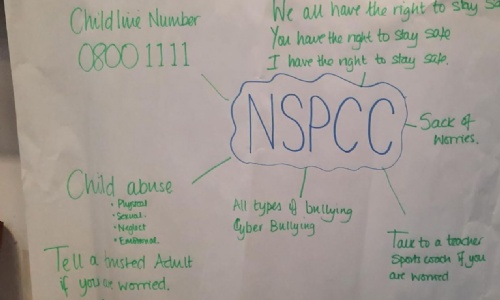 Childline Number
0800 1111
We all have the right to stay safe
You have the right to stay safe
I have the right to stay safe.
NSPCC
Sack of
worries.
Child abuse
• Physical
• Sexual.
• Neglect
• Emotional.
All types of bullying
Cyber Bullying
Tell a trusted Adult
if you are worried.
Talk to a teacher
Sports coach if you
are worried